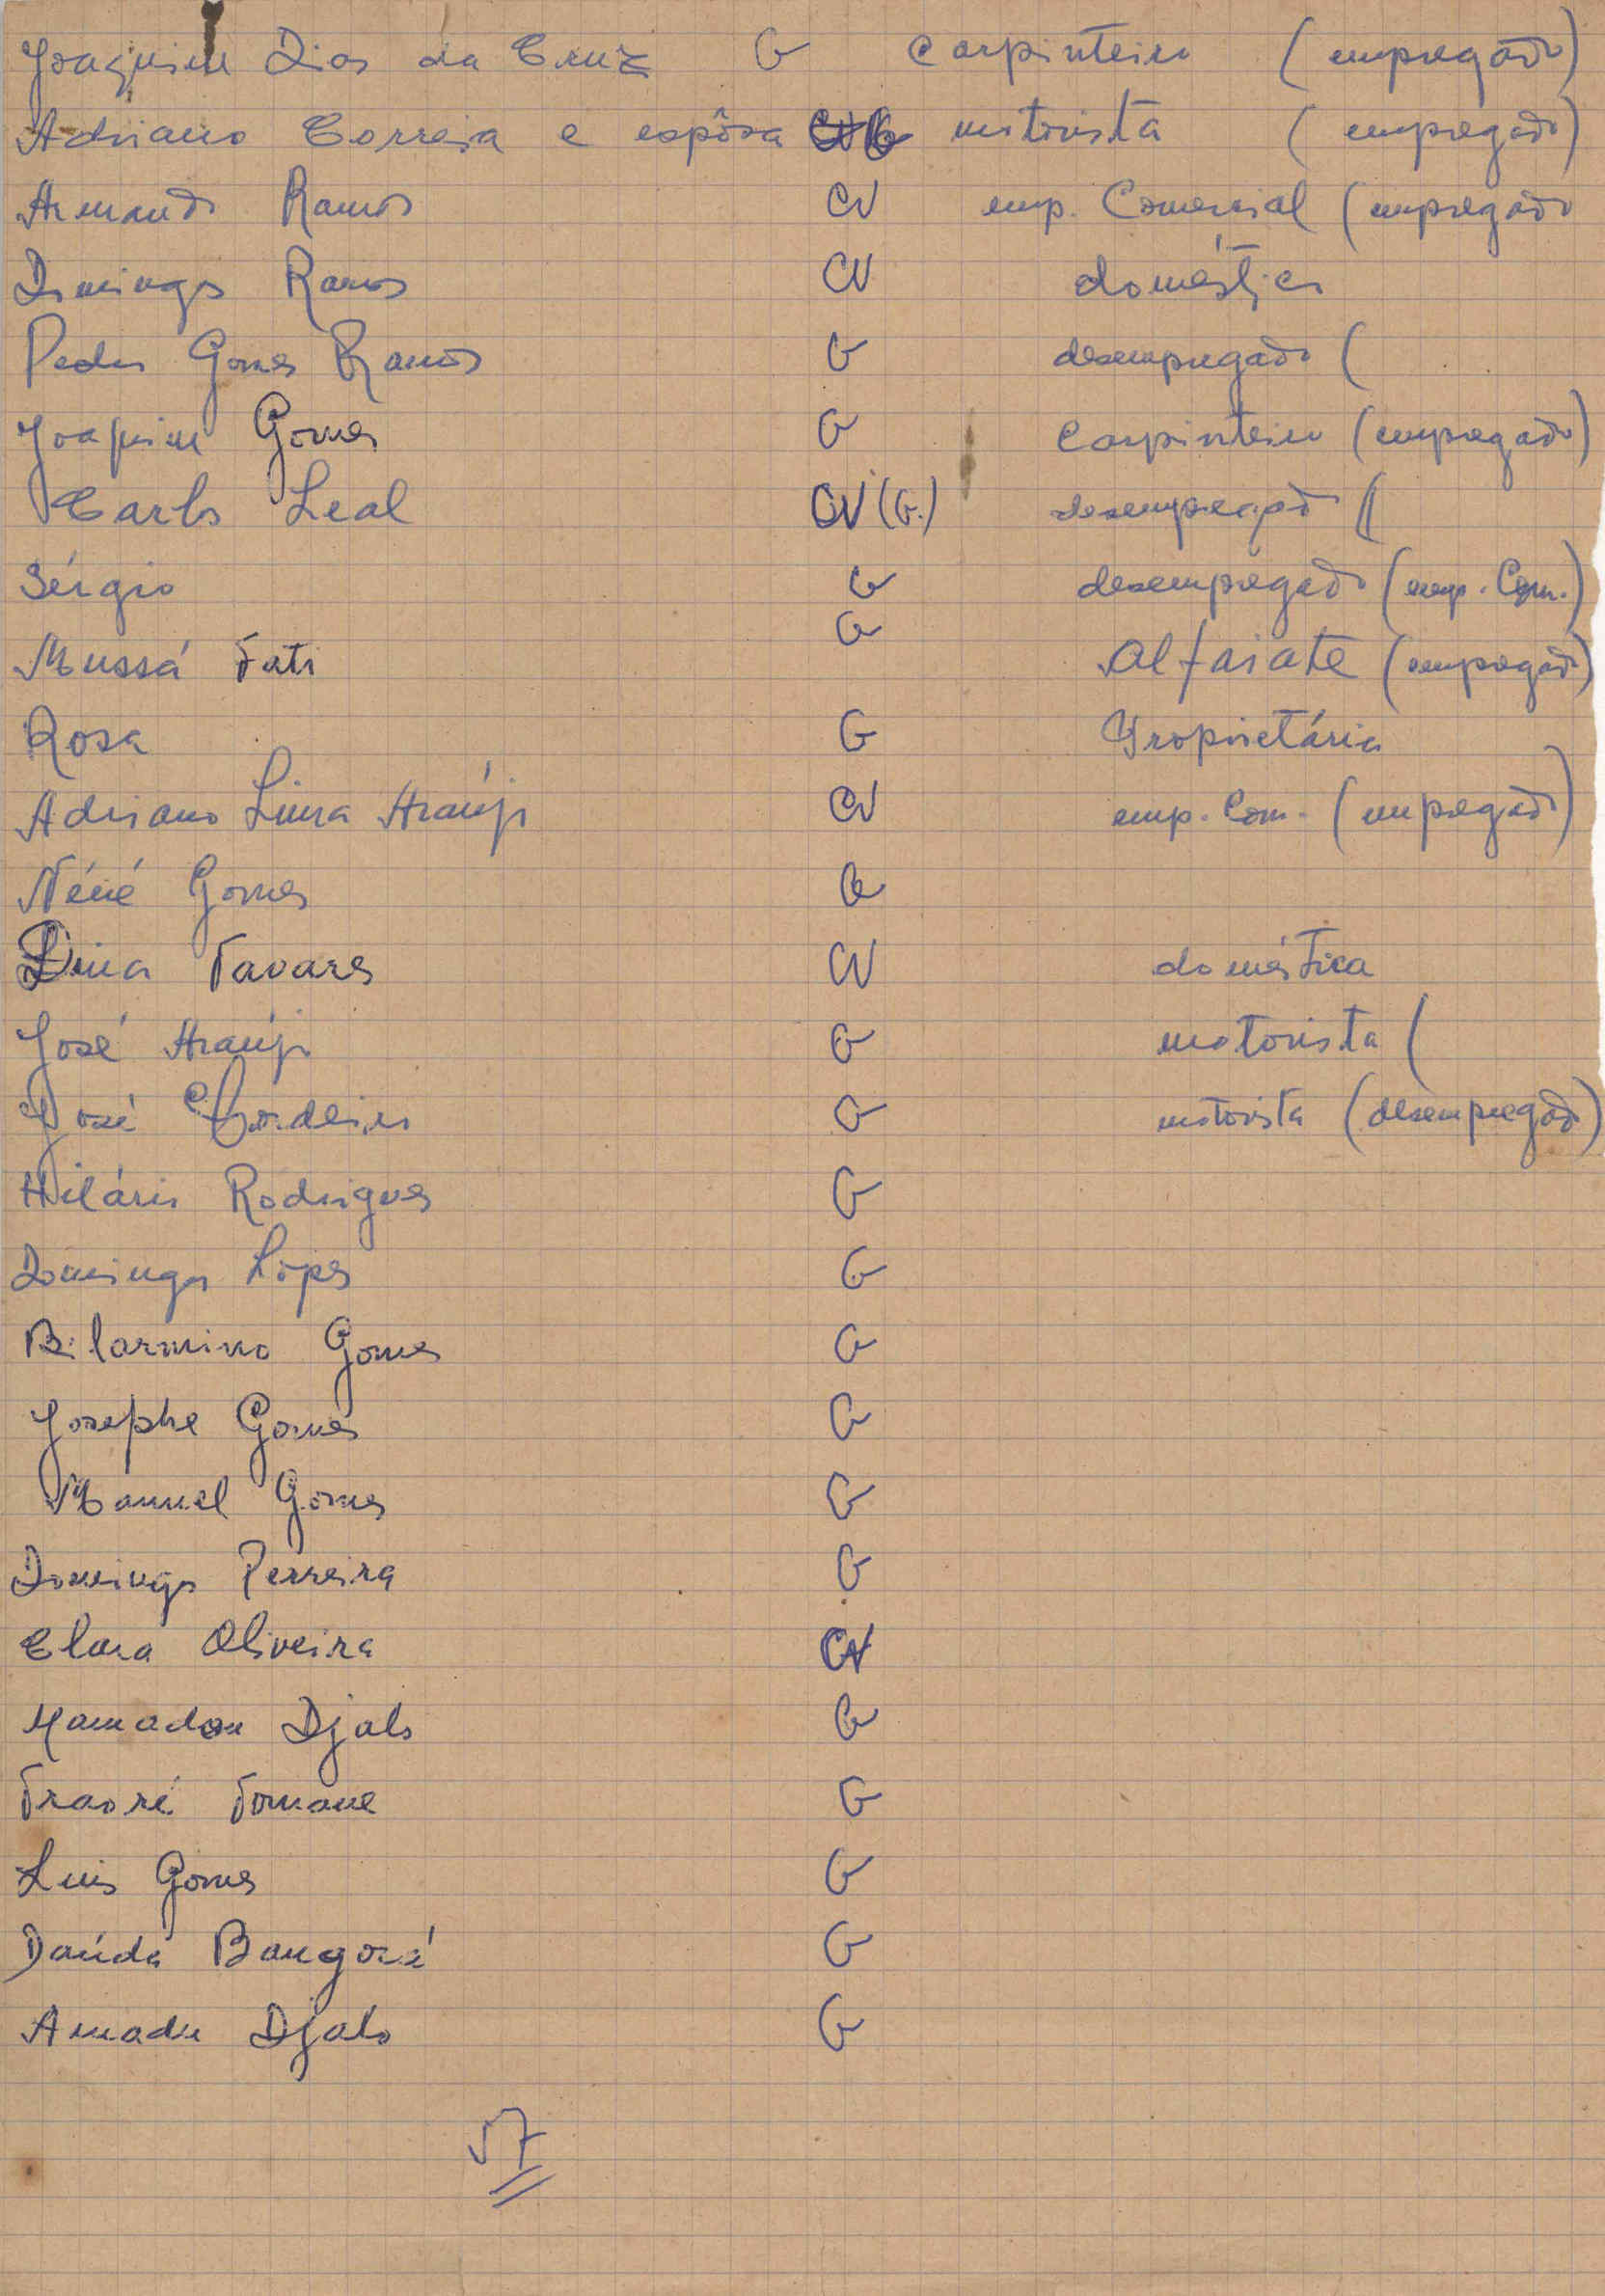 Joaquim Dias da Cruz G carpinteiro (empregado)
Adriano Correia e espôsa motorista (empregado)
Armando Ramos CV emp. Comercial (empregado
Domingos Ramos CV doméstico
Pedro Gomes Ramos G desempregado (
Joaquim Gomes G Carpinteiro (empregado)
Carlos Leal CV (G.) desempregado (
Sérgio G desempregado (emp. Com.)
Mussá Fati G Alfaiate (empregado)
Rosa G Proprietária
Adriano Lima Araújo CV emp. Com. (empregado)
Néné Gomes G
Lina Tavares CV doméstica
José Araújo G motorista (
José Cordeiro G motorista (desempregado)
Hilário Rodrigues G
Domingos Lopes G
Bilarmino Gomes G
Josephe Gomes G
Manuel Gomes G
Domingos Perreira G
Clara Oliveira CV
Mamadou Djalo G
Traoré Tomane G
Luis Gomes G
Daúda Bangorá G
Amadu Djalo G
57